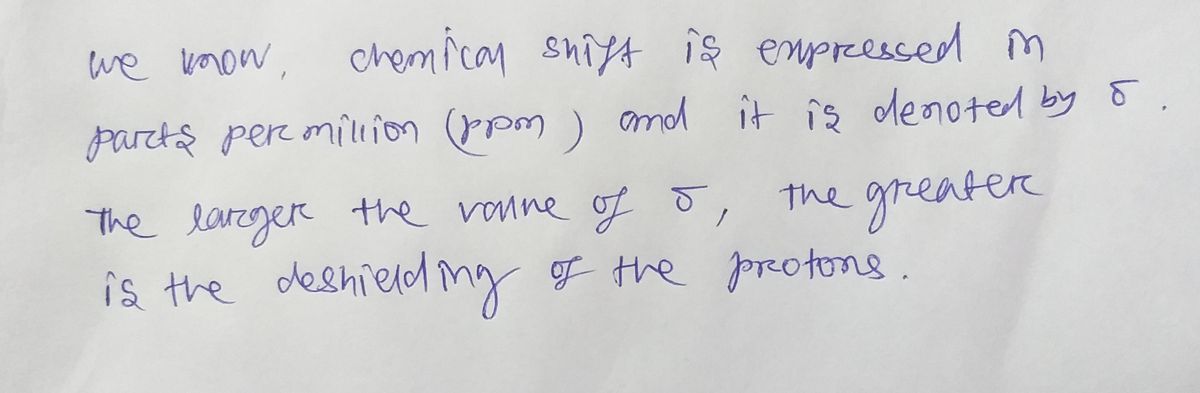 we know, chemical shift is expressed in
parts per million (ppm) and it is denoted by δ.
The larger the value of δ, the greater
is the deshielding of the protons.